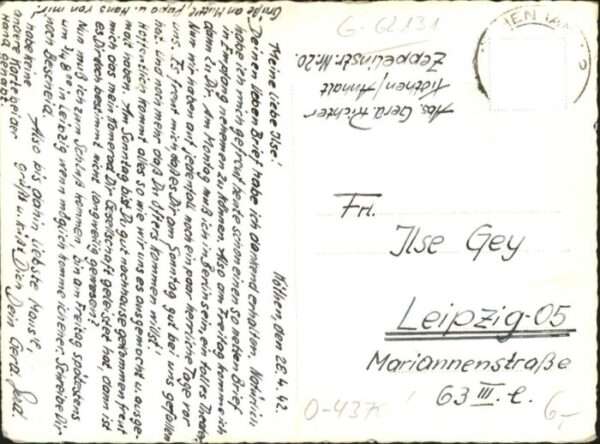 Köthen, den 28.4.42.
Meine liebe Ilse!
Deinen lieben Brief habe ich dankend erhalten. Natürlich
habe ich mich gefreut heute schon einen so netten Brief
in Empfang nehmen zu können. Also am Freitag komme ich
dann zu Dir. Am Montag muß ich in Berlin sein, ein tolles Theater
Nun wir haben auf jedenfall noch ein paar herrliche Tage vor
uns. Es freut mich daß es Dir am Sonntag gut bei uns gefallen
hat und noch mehr daß Du öfters kommen willst!
Hoffentlich kommt alles so wie wir uns es ausgemacht u. ausge-
malt haben. Am Sonntag bist Du gut nachhause gekommen freut
mich das mein Kamerad Dir Gesellschaft geleistet hat, dann ist
es Dir doch bestimmt nicht langweilig gewesen?
Nun muß ich zum Schluß kommen, bin am Freitag spätestens
um in Leipzig wenn möglich komme ich eher. Schreibe Dir
noch Bescheid. Also bis dahin liebste Mausi,
habe keine grüßt u. küßt Dich
andere Karte leider Dein Gerd
Hand gehabt.
Grüße an Mutti, Papa u. Hans von mir!
G-62131
Abs. Gerd Richter
Köthen/Anhalt
Zeppelinstr. Nr. 20.
Frl.
Ilse Gey
Leipzig-O5
Mariannenstraße
63 III. l.
O-437
6,-